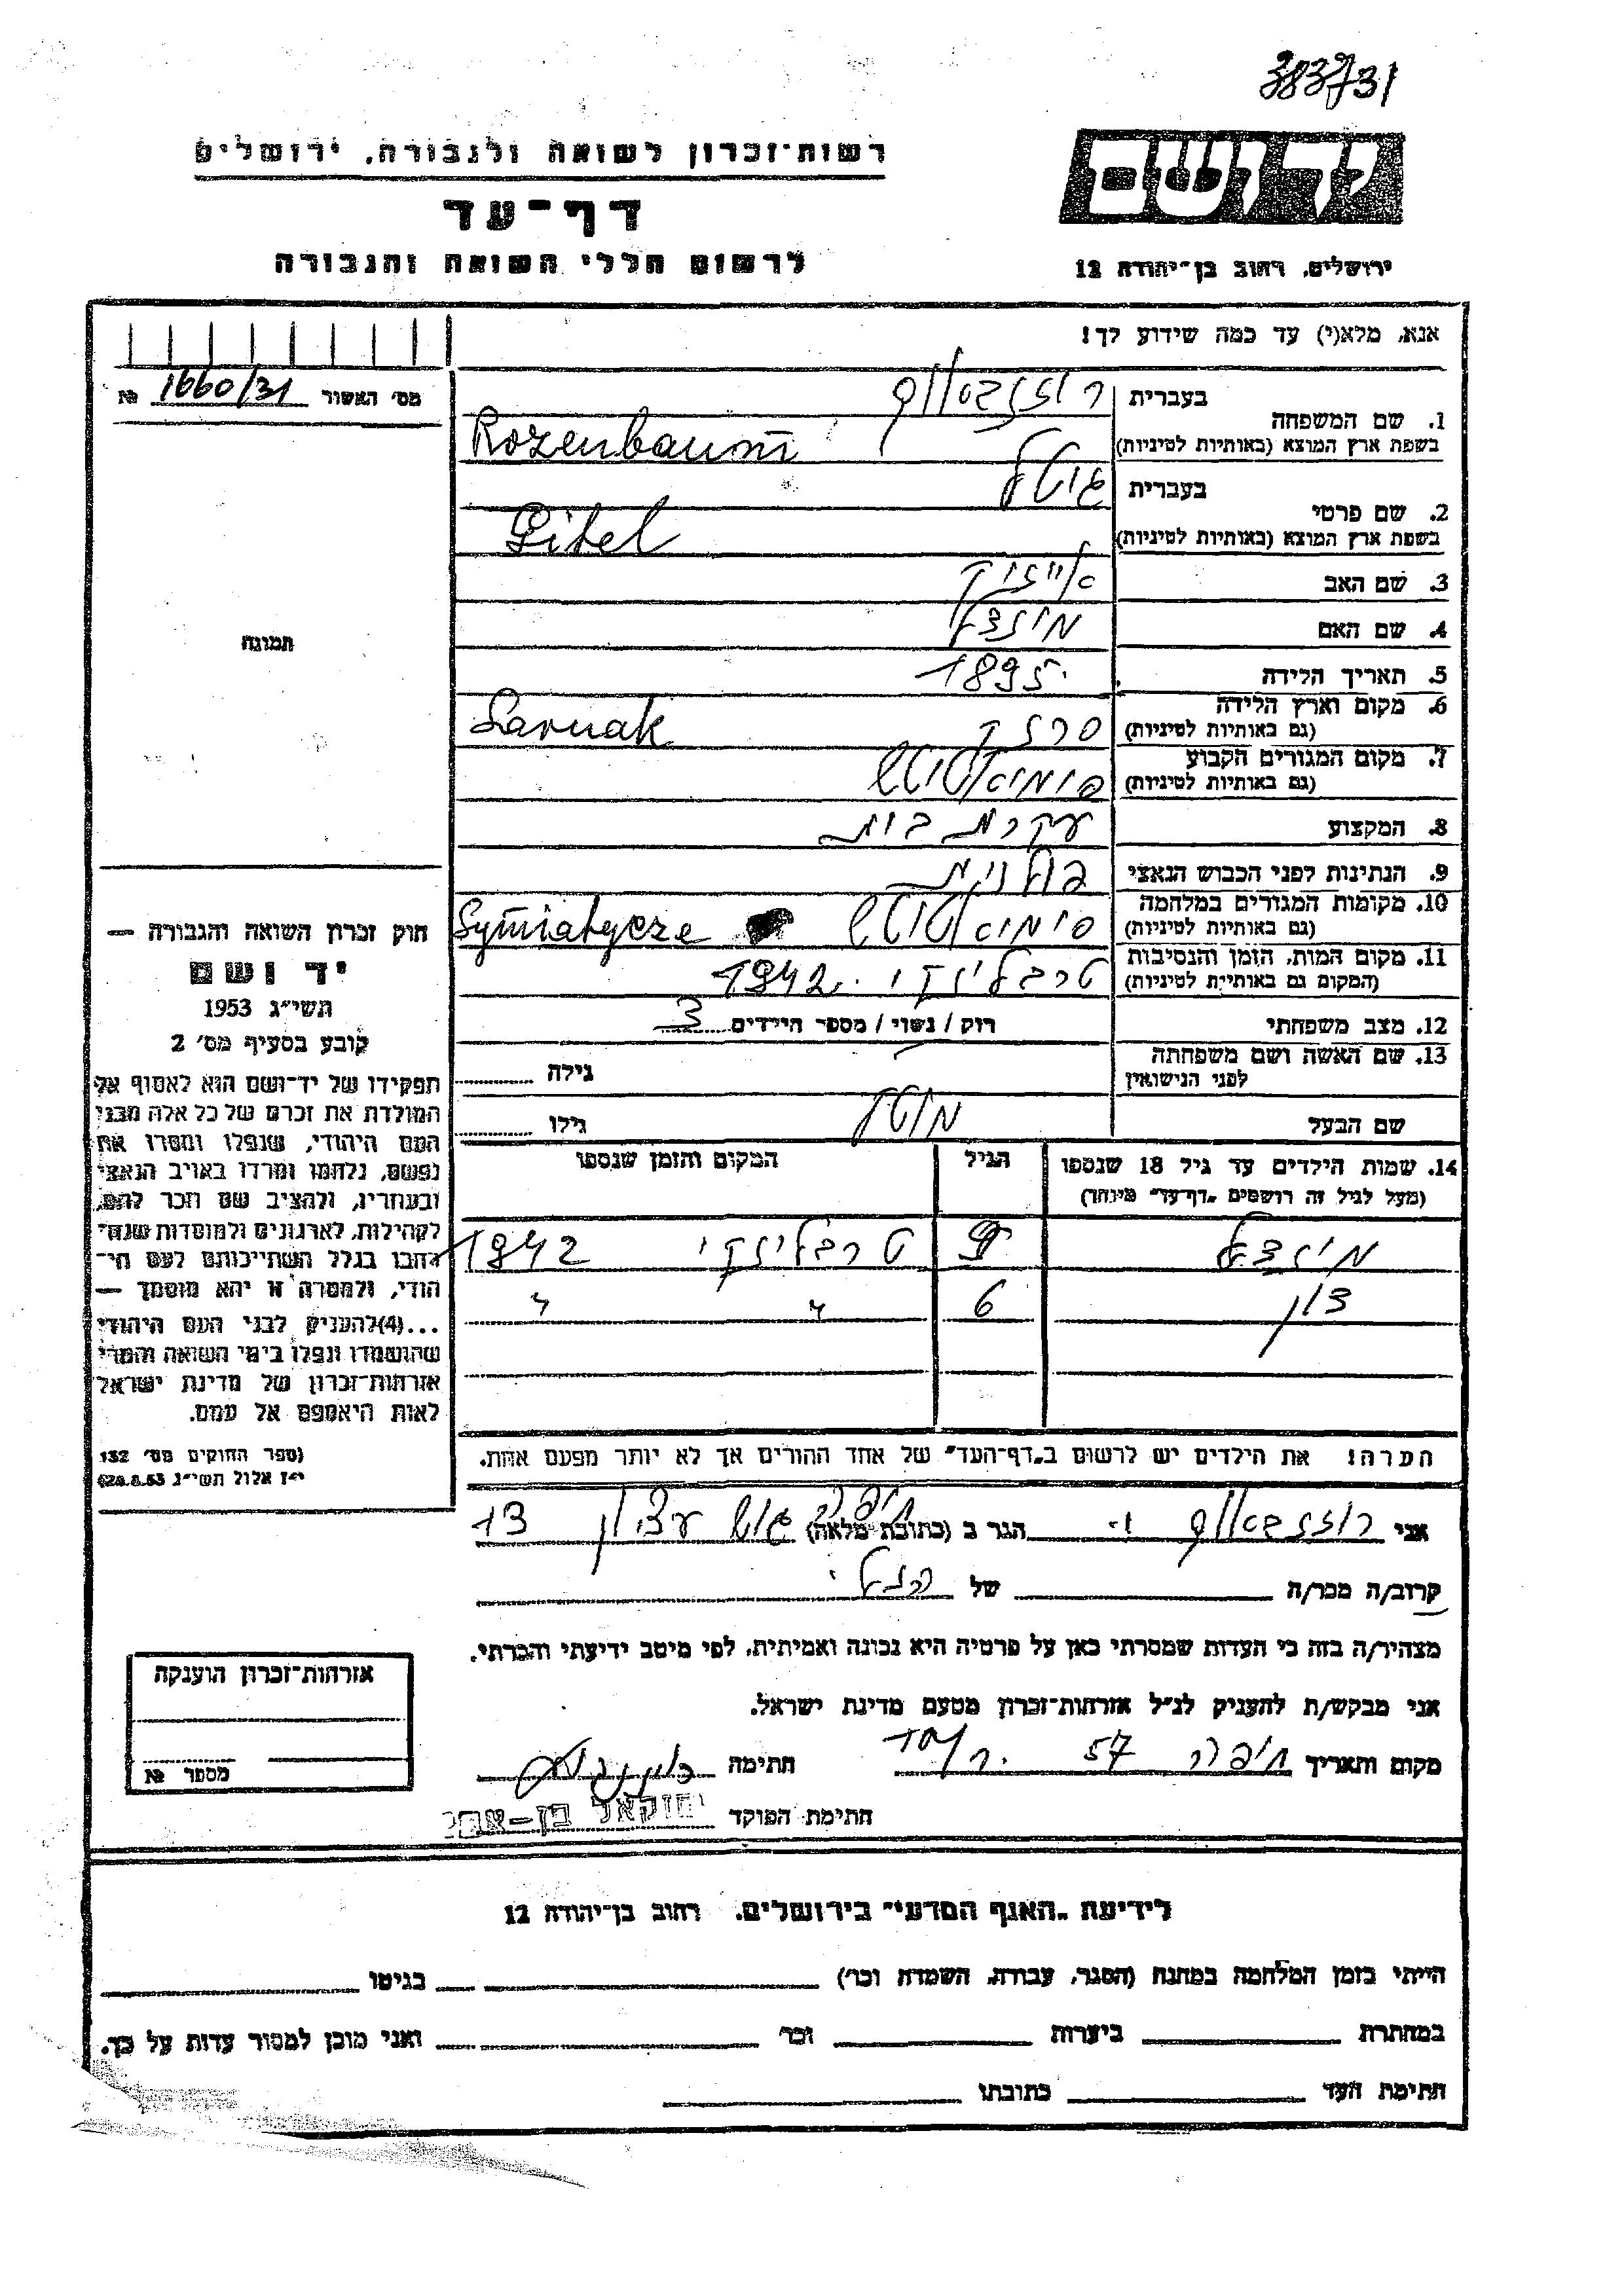 383731
רשות־זכרון לשואה ולגבורה, ירושלים
ידושם
דף־עד
לרשום חללי השואה והגבורה
ירושלים, רחוב בן־יהודה 12
אנא, מלא(י) עד כמה שידוע לך!
מס׳ האשור 1660/31 №
1. שם המשפחה
בעברית רוזנבאום
בשפת ארץ המוצא (באותיות לטיניות) Rozenbaum
2. שם פרטי
בעברית גיטל
בשפת ארץ המוצא (באותיות לטיניות) Gitel
3. שם האב אייזיק
4. שם האם מינצה
5. תאריך הלידה 1895
6. מקום וארץ הלידה סרנק Sarnak
(גם באותיות לטיניות)
7. מקום המגורים הקבוע סימיאטיטש
(גם באותיות לטיניות)
8. המקצוע עקרת בית
9. הנתינות לפני הכבוש הנאצי פולנית
10. מקומות המגורים במלחמה סימיאטיטש Symiatycze
(גם באותיות לטיניות)
11. מקום המות, הזמן והנסיבות טרבלינקי 1942
(המקום גם באותיות לטיניות)
12. מצב משפחתי רוק / נשוי / מספר הילדים 3
13. שם האשה ושם משפחתה
לפני הנישואין
גילה
שם הבעל
גילו
14. שמות הילדים עד גיל 18 שנספו
(מעל לגיל זה רושמים „דף־עד״ מיוחד)
הגיל
המקום והזמן שנספו
9 טרבלינקי 1942
6 " "
הערה! את הילדים יש לרשום ב„דף־העד״ של אחד ההורים אך לא יותר מפעם אחת.
תמונה
חוק זכרון השואה והגבורה —
יד ושם
תשי״ג 1953
קובע בסעיף מס׳ 2
תפקידו של יד־ושם הוא לאסוף אל
המולדת את זכרם של כל אלה מבני
העם היהודי, שנפלו ומסרו את
נפשם, נלחמו ומרדו באויב הנאצי
ובעוזריו, ולהציב שם וזכר להם,
לקהילות, לארגונים ולמוסדות שנח־
רבו בגלל השתייכותם לעם הי־
הודי, ולמטרה זו יהא מוסמך —
...(4)להעניק לבני העם היהודי
שהושמדו ונפלו בימי השואה והמרי
אזרחות־זכרון של מדינת ישראל
לאות היאספם אל עמם.
(ספר החוקים מס׳ 132
י״ז אלול תשי״ג 28.8.53)
אני רוזנבאום י. הגר ב (כתובת מלאה) חיפה 13
קרוב/ה מכר/ה של
מצהיר/ה בזה כי העדות שמסרתי כאן על פרטיה היא נכונה ואמיתית, לפי מיטב ידיעתי והכרתי.
אני מבקש/ת להעניק לנ״ל אזרחות־זכרון מטעם מדינת ישראל.
מקום ותאריך חיפה 57 חתימה
חתימת הפוקד יחזקאל בן־
אזרחות־זכרון הוענקה
מספר №
לידיעת „האגף המדעי״ בירושלים, רחוב בן־יהודה 12
הייתי בזמן המלחמה במחנה (הסגר, עבודה, השמדה וכו׳) בגיטו
במחתרת ביערות וכו׳ ואני מוכן למסור עדות על כך.
חתימת העד כתובתו